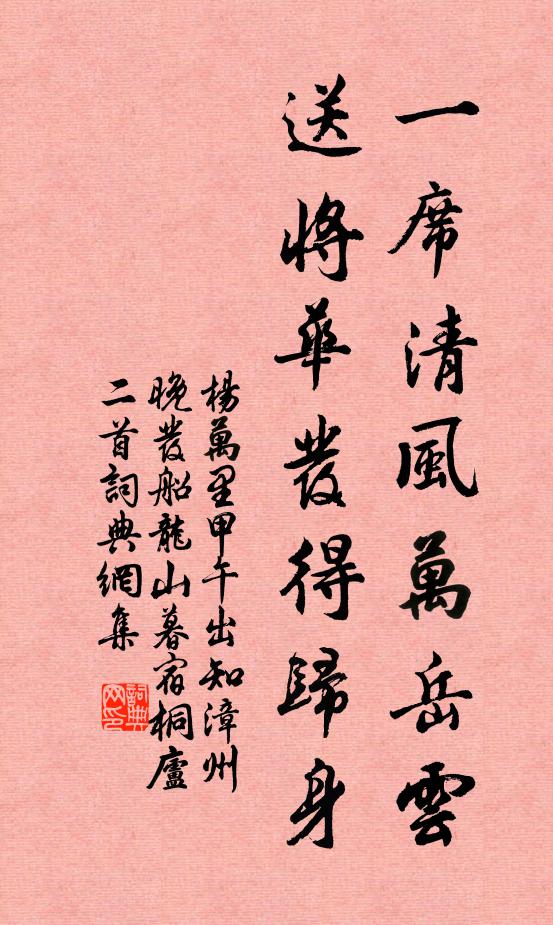 一席清風萬岳雲
送將華發得歸身
楊萬里甲午出知漳州
晚發船龍山暮宿桐廬
二首詞典網集
詞典網印